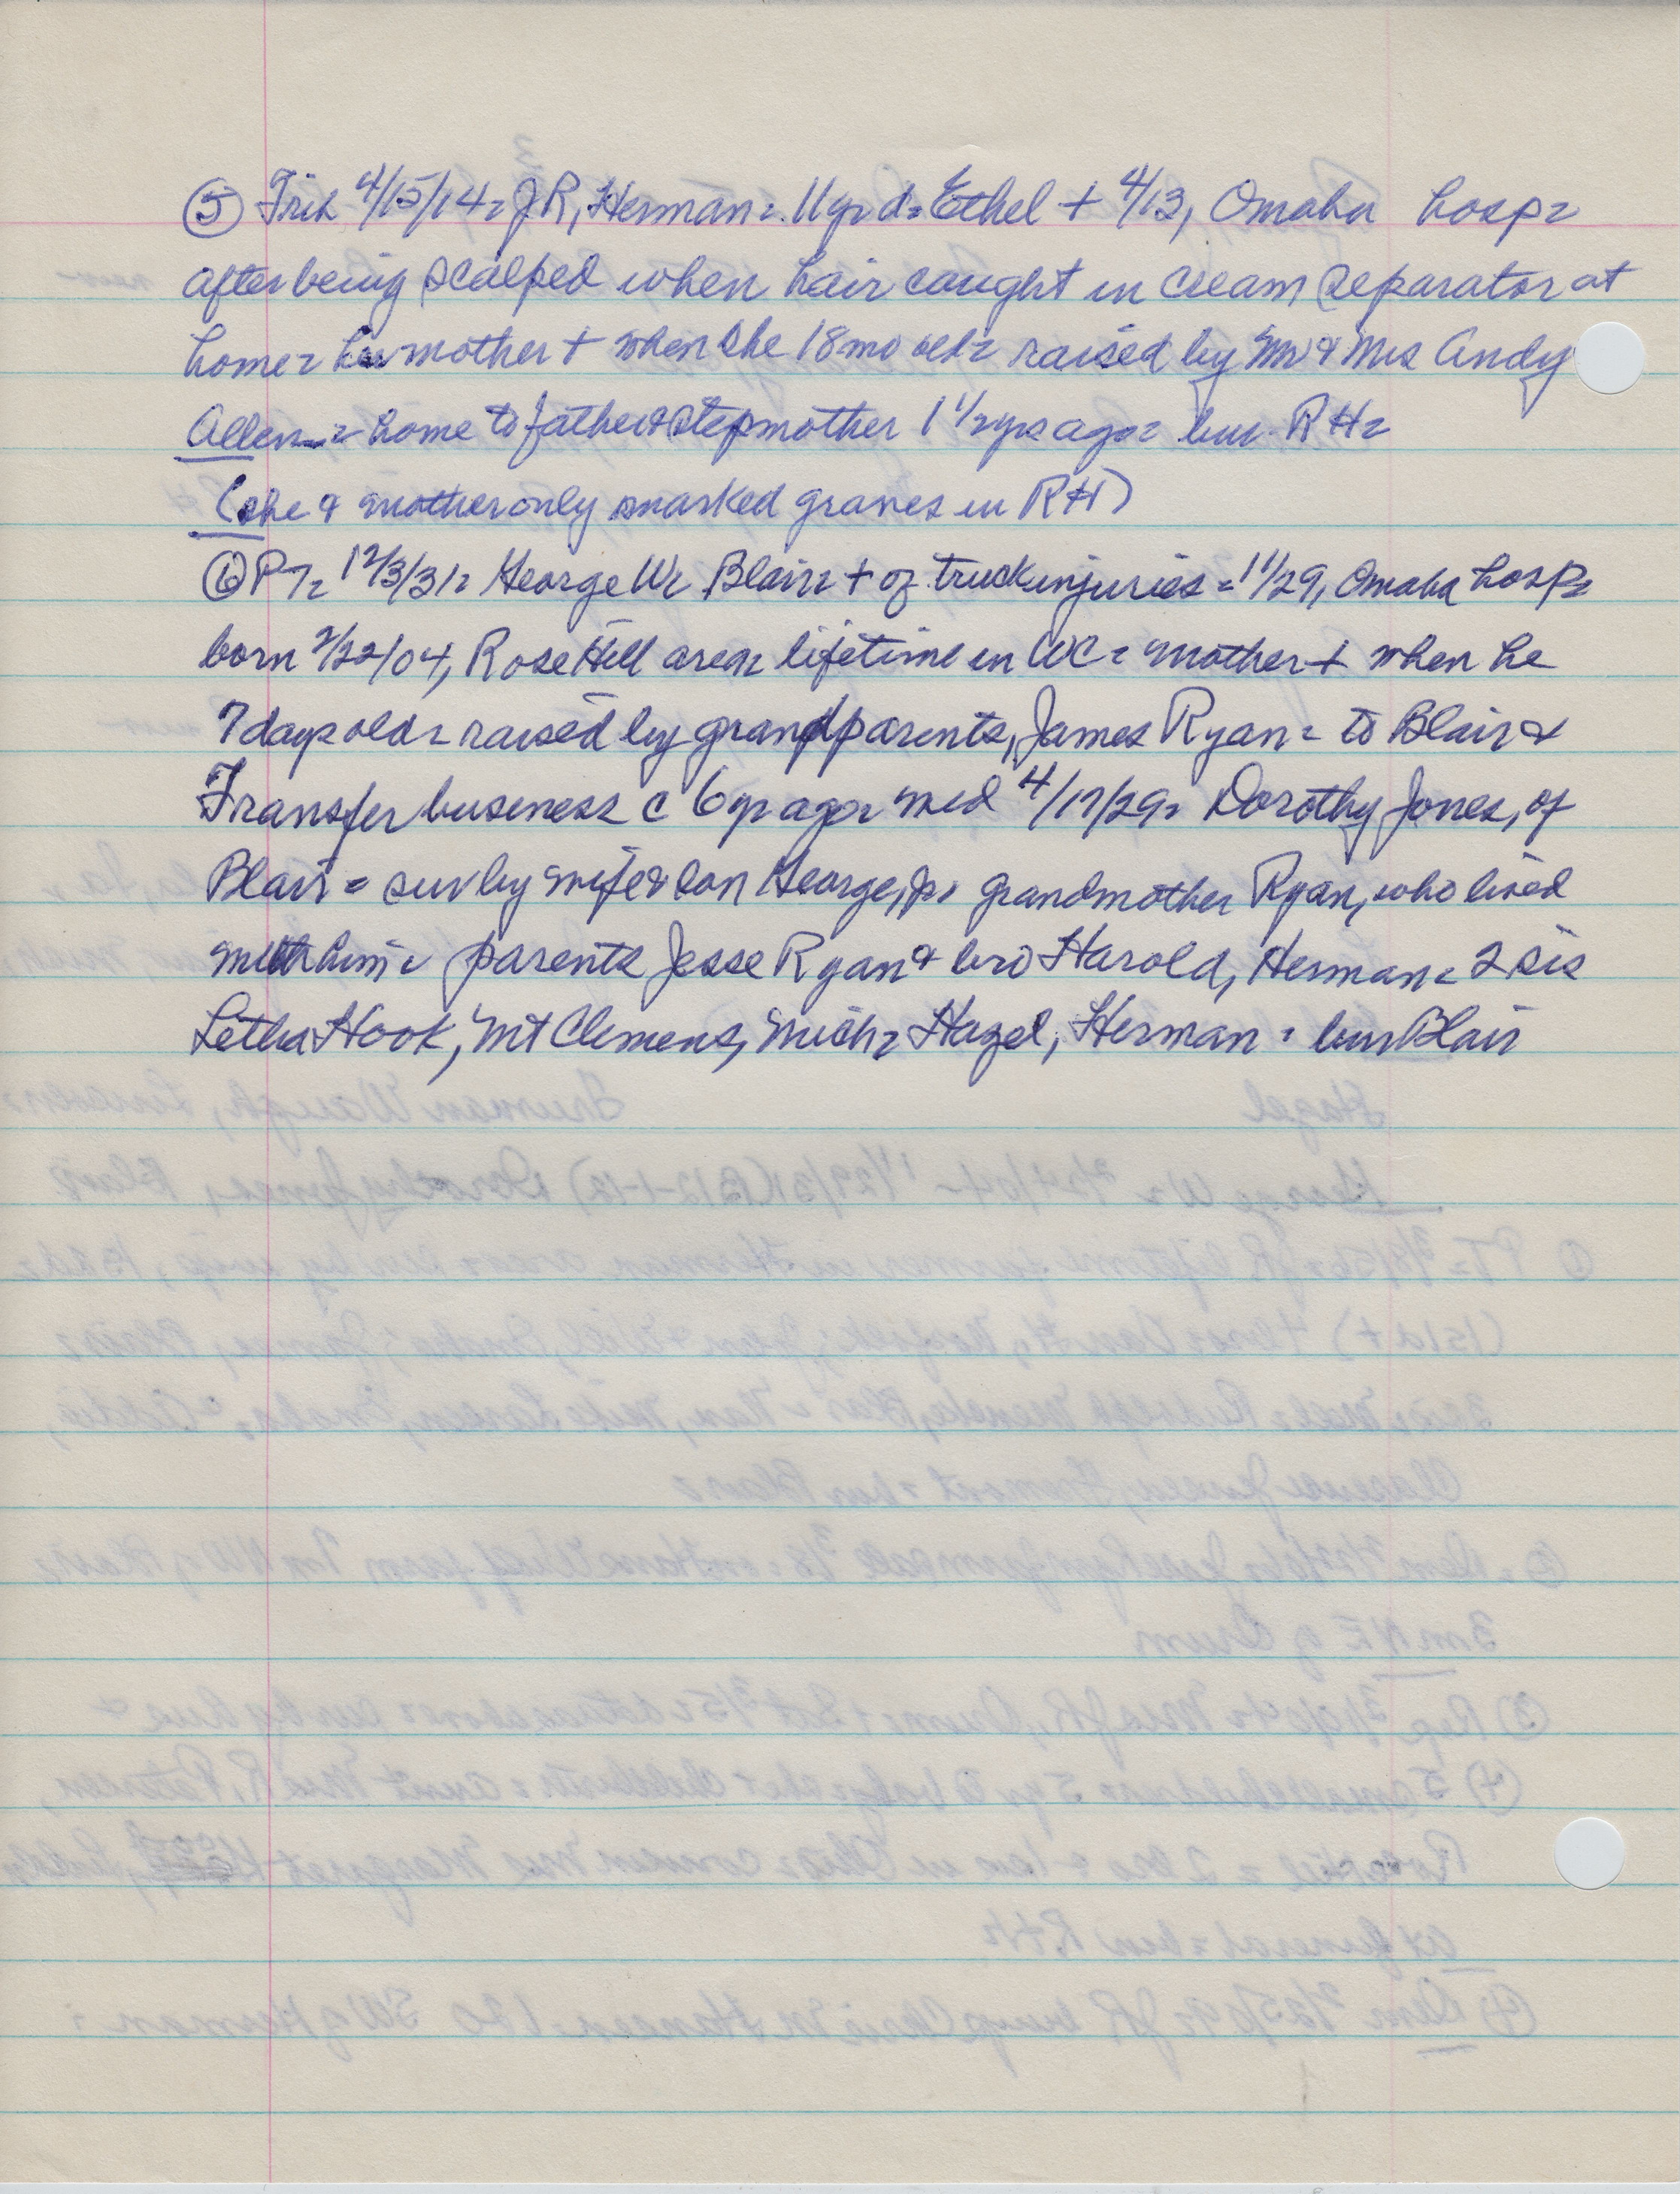 ⑤ Trib 4/15/14= JR, Herman= 11 yr d= Ethel + 4/13, Omaha hosp=
after being scalped when hair caught in cream separator at
home= her mother + when she 18 mo old= raised by Mr & Mrs Andy
Allen = home to father & stepmother 1 1/2 yrs ago= bur RH=
(she & mother only marked graves in RH)
⑥ PT= 12/3/31= George W= Blair= + of truck injuries = 11/29, Omaha hosp=
born 2/22/04, Rose Hill area= lifetime in WC= mother + when he
7 days old= raised by grandparents, James Ryan= to Blair &
Transfer business c 6 yr ago= med 4/17/29= Dorothy Jones, of
Blair = sur by wife & son George, Jr= grandmother Ryan, who lived
with him= parents Jesse Ryan & bro Harold, Herman= 2 sis
Letha Hook, Mt Clemens, Mich= Hazel, Herman = bur Blair